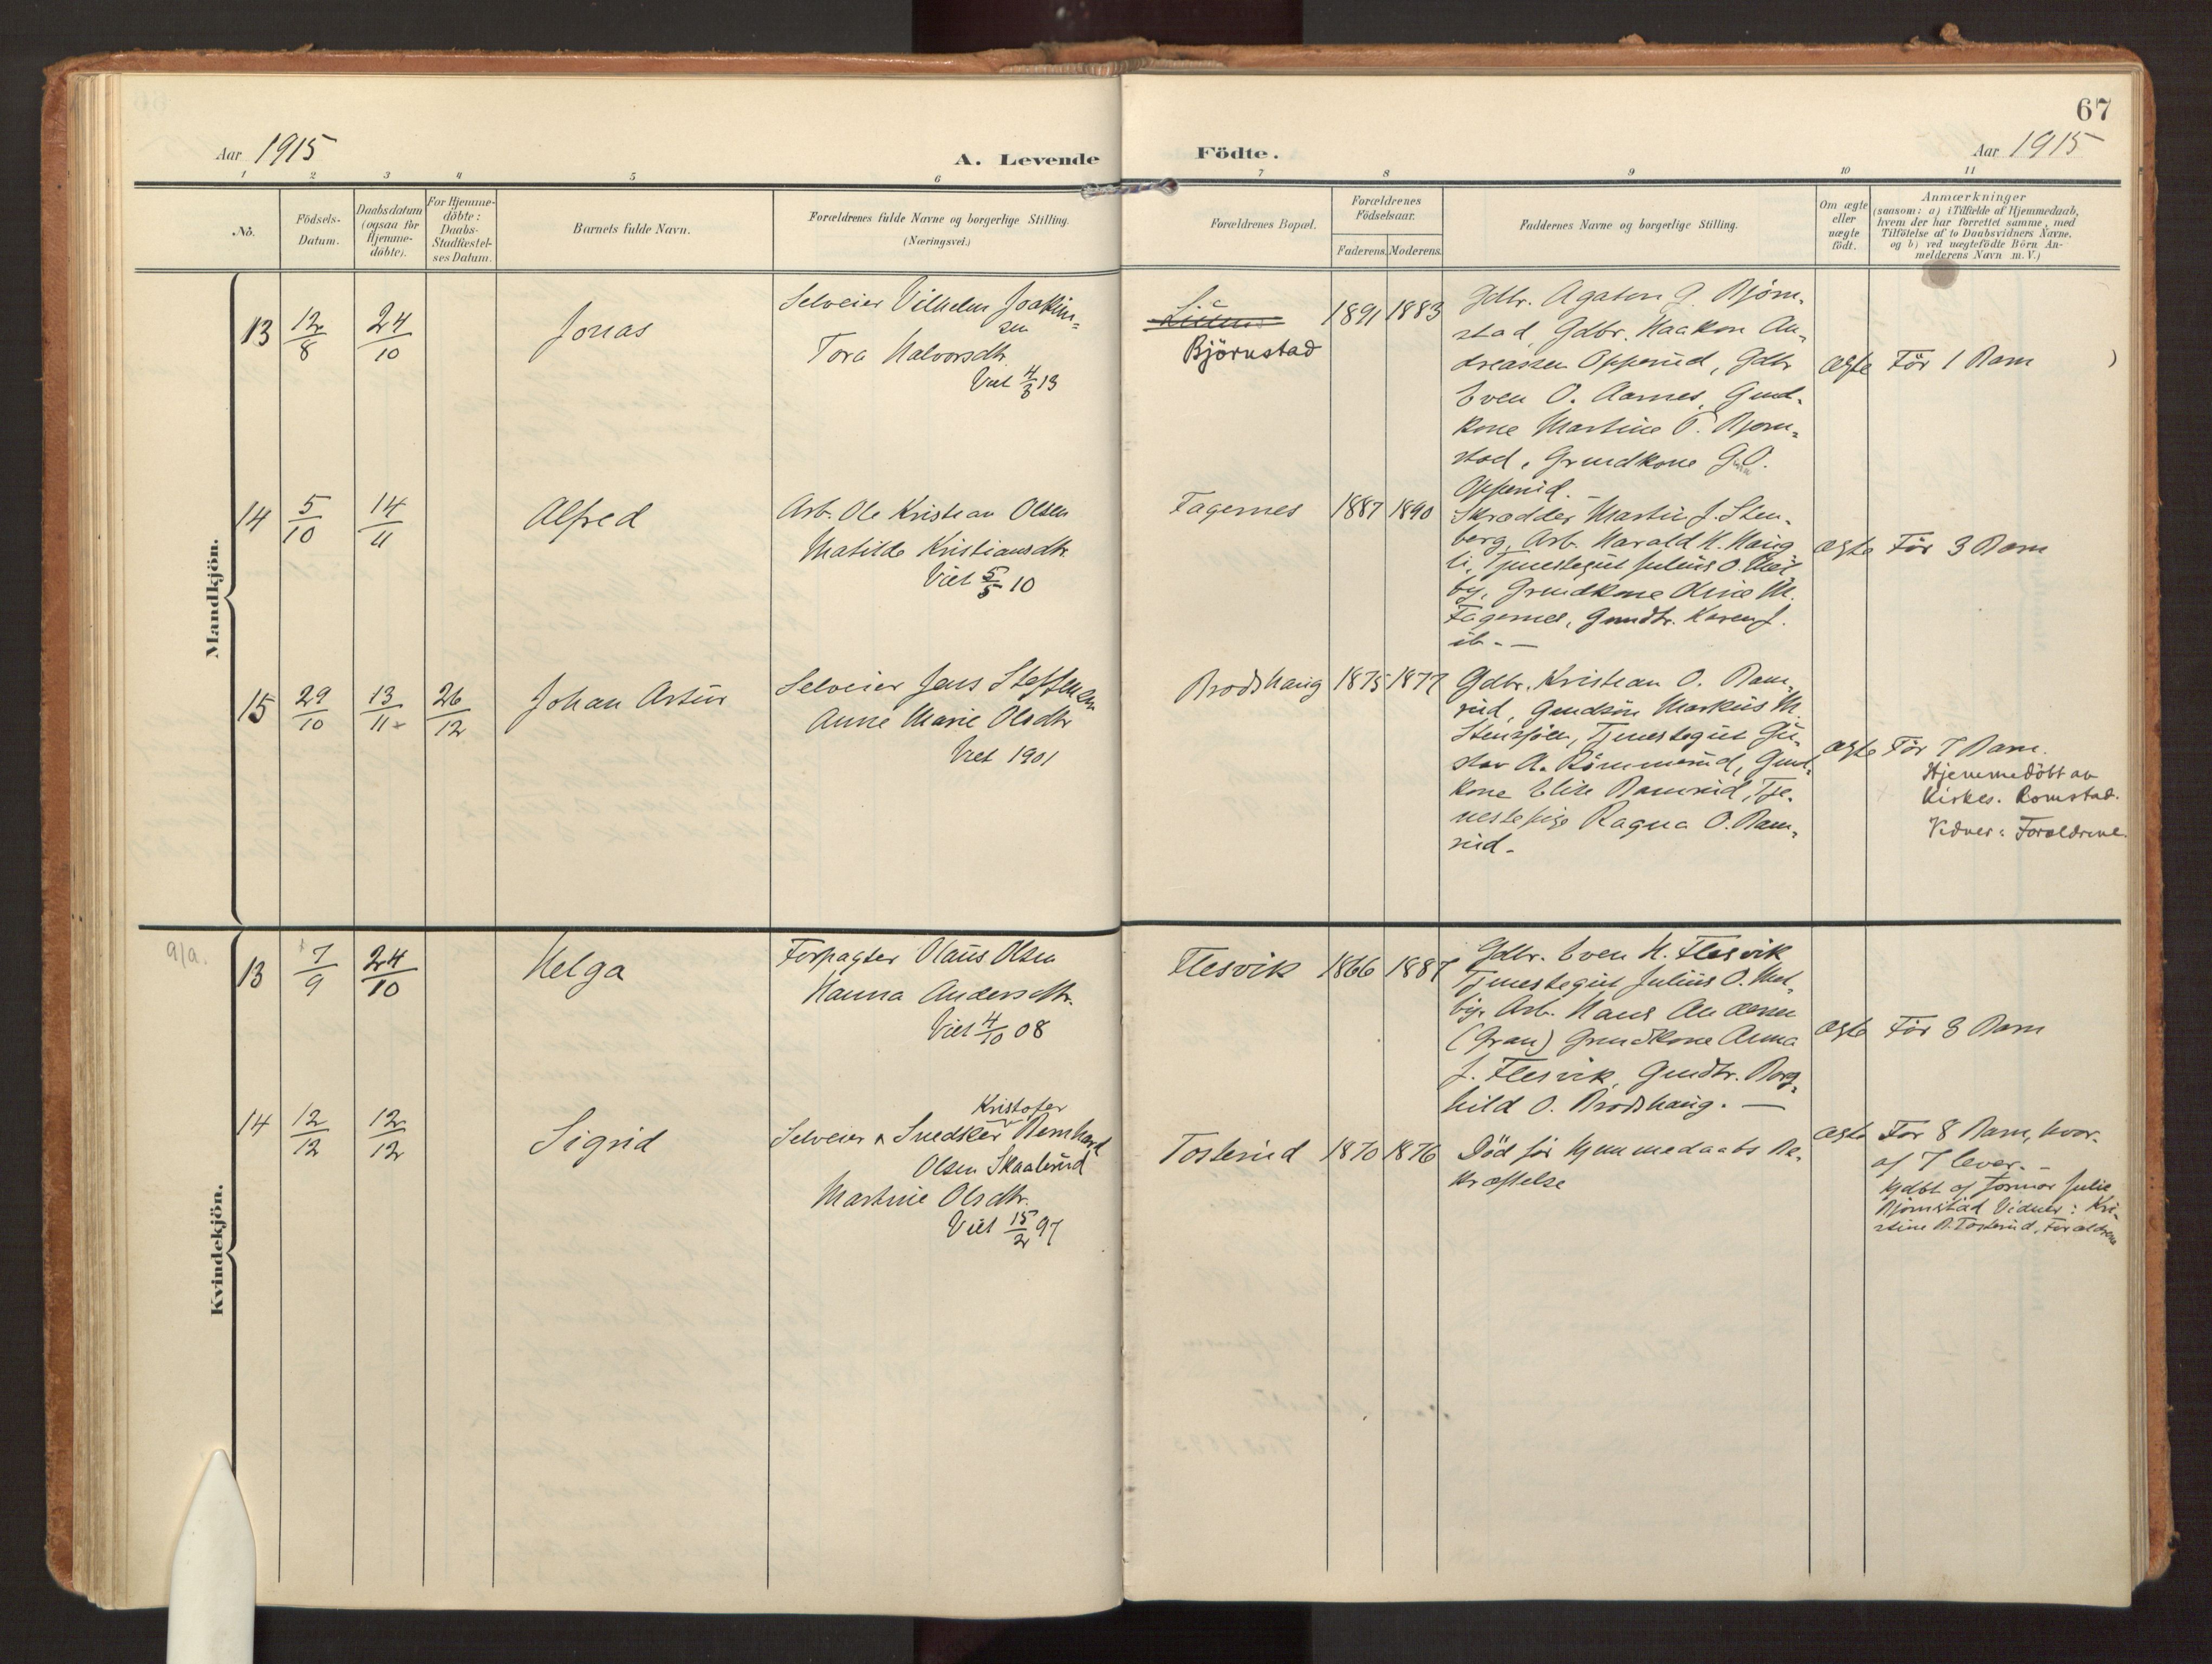 67
Aar 1915
A. Levende
Födte.
Aar 1915
1 2 3 4 5 6 7 8 9 10 11
No.
Födsels-
Datum.
Daabsdatum
(ogsaa for
Hjemme-
döbte).
For Hjemme-
döbte:
Daabs-
Stadfæstel-
ses Datum.
Barnets fulde Navn.
Forældrenes fulde Navne og borgerlige Stilling.
(Næringsvei.)
Forældrenes Bopæl.
Forældrenes
Födselsaar.
Faderens. Moderens.
Faddernes Navne og borgerlige Stilling.
Om ægte
eller
uægte
födt.
Anmærkninger
(saasom: a) i Tilfælde af Hjemmedaab,
hvem der har forrettet samme, med
Tilföielse af to Daabsvidners Navne.
og b) ved uægtefödte Börn An-
melderens Navn m. V.)
Mandkjön.
13
12/8
24/10
Jonas
Selveier Vilhelm Joakim-
sen
Tora Halvorsdtr.
Viet 4/3 13
Björnstad
1891 1883
Gdbr. Agaton G. Björn-
stad, Gdbr. Haakon An-
dreassen Opperud, Gdbr
Even O. Aarnes, Grud-
kone Martine P. Bjorn-
stad, Grundkone G. O.
Opperud. —
ægte
För 1 Barn
14
5/10
14/11
Alfred
Arb. Ole Kristian Olsen
Matilde Kristiansdtr
Viet 5/5 10
Fagernes
1887 1890
Skrædder Martin J. Sten-
berg, Arb. Harald H. Haug
li, Tjenestegut Julius O. Mel
by, Grundkone Lina M.
Fagernes, Grundtr. Karen J.
ib. —
ægte
För 3 Barn
15
29/10
13/11
26/12
Johan Artur
Selveier Jens Steffensen
Anne Marie Olsdtr
Viet 1901
Brodshaug
1875 1877
Gdbr. Kristian O. Ram-
rud, Grudsön Markus M.
Stensjöen, Tjenestegut Gu-
stav A. Römmerud, Grud-
kone Elise Ramrud, Tje-
nestepige Ragna O. Ram-
rud.
ægte
För 7 Barn.
Hjemmedöbt av
Kirkes. Romstad.
Vidner: Forældrene.
Kvindekjön.
a/a.
13
7/9
24/10
Helga
Forpagter Olaus Olsen
Hanna Andersdtr.
Viet 4/10 08
Flesvik
1866 1887
Gdbr. Even H. Flesvik
Tjenestegut Julius O. Mel-
by. Arb. Hans Andersen
(Gran) Grundkone Anna
J. Flesvik, Grudtr. Borg-
hild O. Brodshaug. —
ægte
För 3 Barn
14
12/12
12/12
Sigrid
Kristofer
Selveier & Snedker Bernhard
Olsen Skaalerud
Martine Olsdtr.
Viet 15/2 97
Tosterud
1870 1876
Död för hjemmedaabs Be-
kræftelse
ægte
För 8 Barn, hvor-
af 7 lever. —
Hjdbt af Jormor Julie
Björnstad Vidner: Kri-
stine B. Tosterud, Forældrene